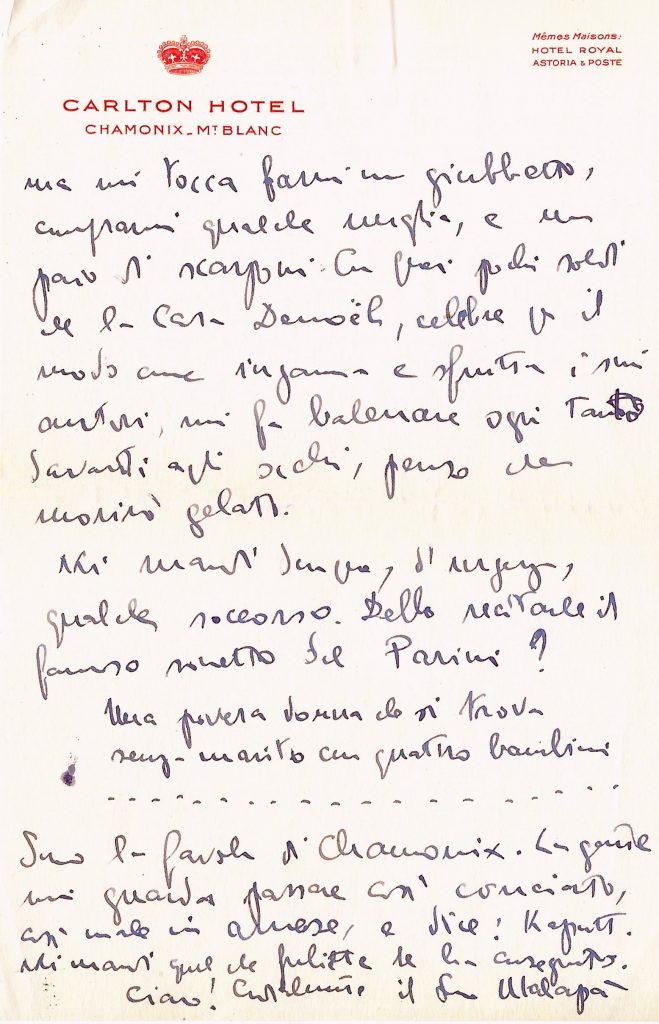 Mêmes Maisons:
HOTEL ROYAL
ASTORIA & POSTE
CARLTON HOTEL
CHAMONIX_MT BLANC
ma mi tocca farmi un giubbetto,
comprarmi qualche maglia, e un
paio di scarponi. Con quei pochi soldi
che la Casa Denoël, celebre per il
modo come inganna e sfrutta i suoi
autori, mi fa balenare ogni tanto
davanti agli occhi, penso che
morirò gelato.
Mi mandi dunque, d'urgenza,
qualche soccorso. Debbo recitarle il
famoso sonetto del Parini?
Una povera donna che si trova
senza marito con quattro bambini
- - - - - - - - - - - - - - - -
Sono la favola di Chamonix. La gente
mi guarda passare così conciato,
così male in arnese, e dice: Kaputt.
Mi mandi quel che Juliette le ha consegnato.
Ciao! Cordialmente il Suo